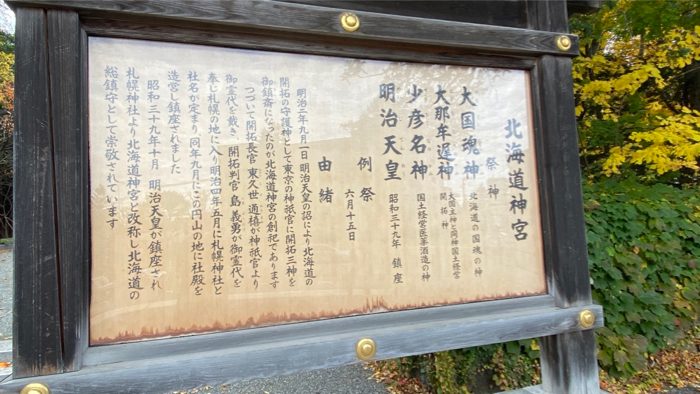 北海道神宮
祭神
大国魂神 北海道の国魂の神
大那牟遅神 大国主神と同神国土経営
開拓神
少彦名神 国土経営医薬酒造の神
明治天皇 昭和三十九年 鎮座
例祭 六月十五日
由緒
明治二年九月一日 明治天皇の詔により北海道の
開拓の守護神として東京の神祇官に開拓三神を
御鎮斎になったのが北海道神宮の創祀であります
つづいて開拓長官 東久世通禧が神祇官より
御霊代を戴き、開拓判官 島義勇が御霊代を
奉じ札幌の地に入り明治四年五月に札幌神社と
社名が定まり、同年九月にこの円山の地に社殿を
造営し鎮座されました
昭和三十九年十月 明治天皇が鎮座され
札幌神社より北海道神宮と改称し北海道の
総鎮守として崇敬されています